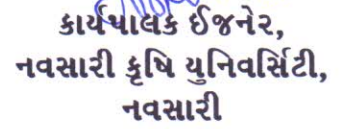 કાર્યપાલક ઈજનેર,
નવસારી કૃષિ યુનિવર્સિટી,
નવસારી